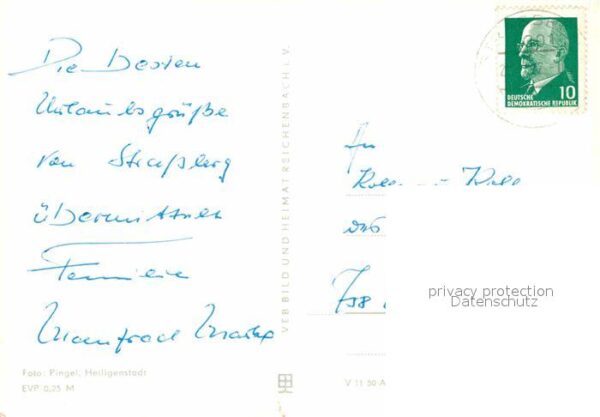 Die Besten
Urlaubsgrüße
von Straßberg
übermitteln
Familie
Manfred
Foto: Pingel, Heiligenstadt
EVP 0,25 M
VEB BILD UND HEIMAT REICHENBACH I. V.
10
DEUTSCHE
DEMOKRATISCHE REPUBLIK
An
privacy protection
Datenschutz
V 11 50 A